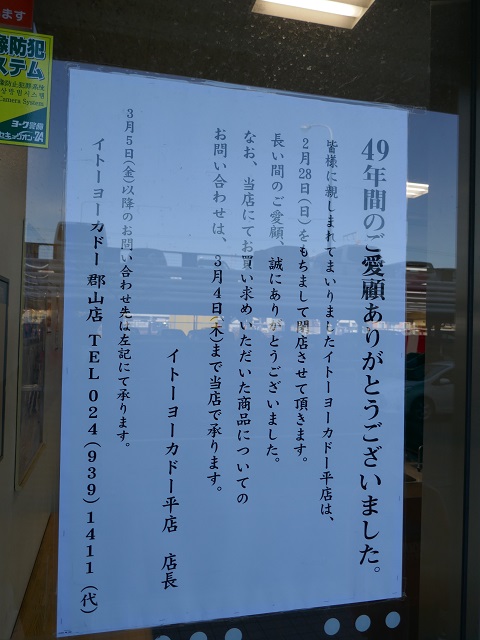 49年間のご愛顧ありがとうございました。
皆様に親しまれてまいりましたイトーヨーカドー平店は、
2月28日(日)をもちまして閉店させて頂きます。
長い間のご愛顧、誠にありがとうございました。
なお、当店にてお買い求めいただいた商品についての
お問い合わせは、3月4日(木)まで当店で承ります。
イトーヨーカドー平店 店長
3月5日(金)以降のお問い合わせ先は左記にて承ります。
イトーヨーカドー郡山店 TEL 024(939)1411(代)
ます
像防犯
ステム
Camera System
ヨーク警備
セキュリオン-24